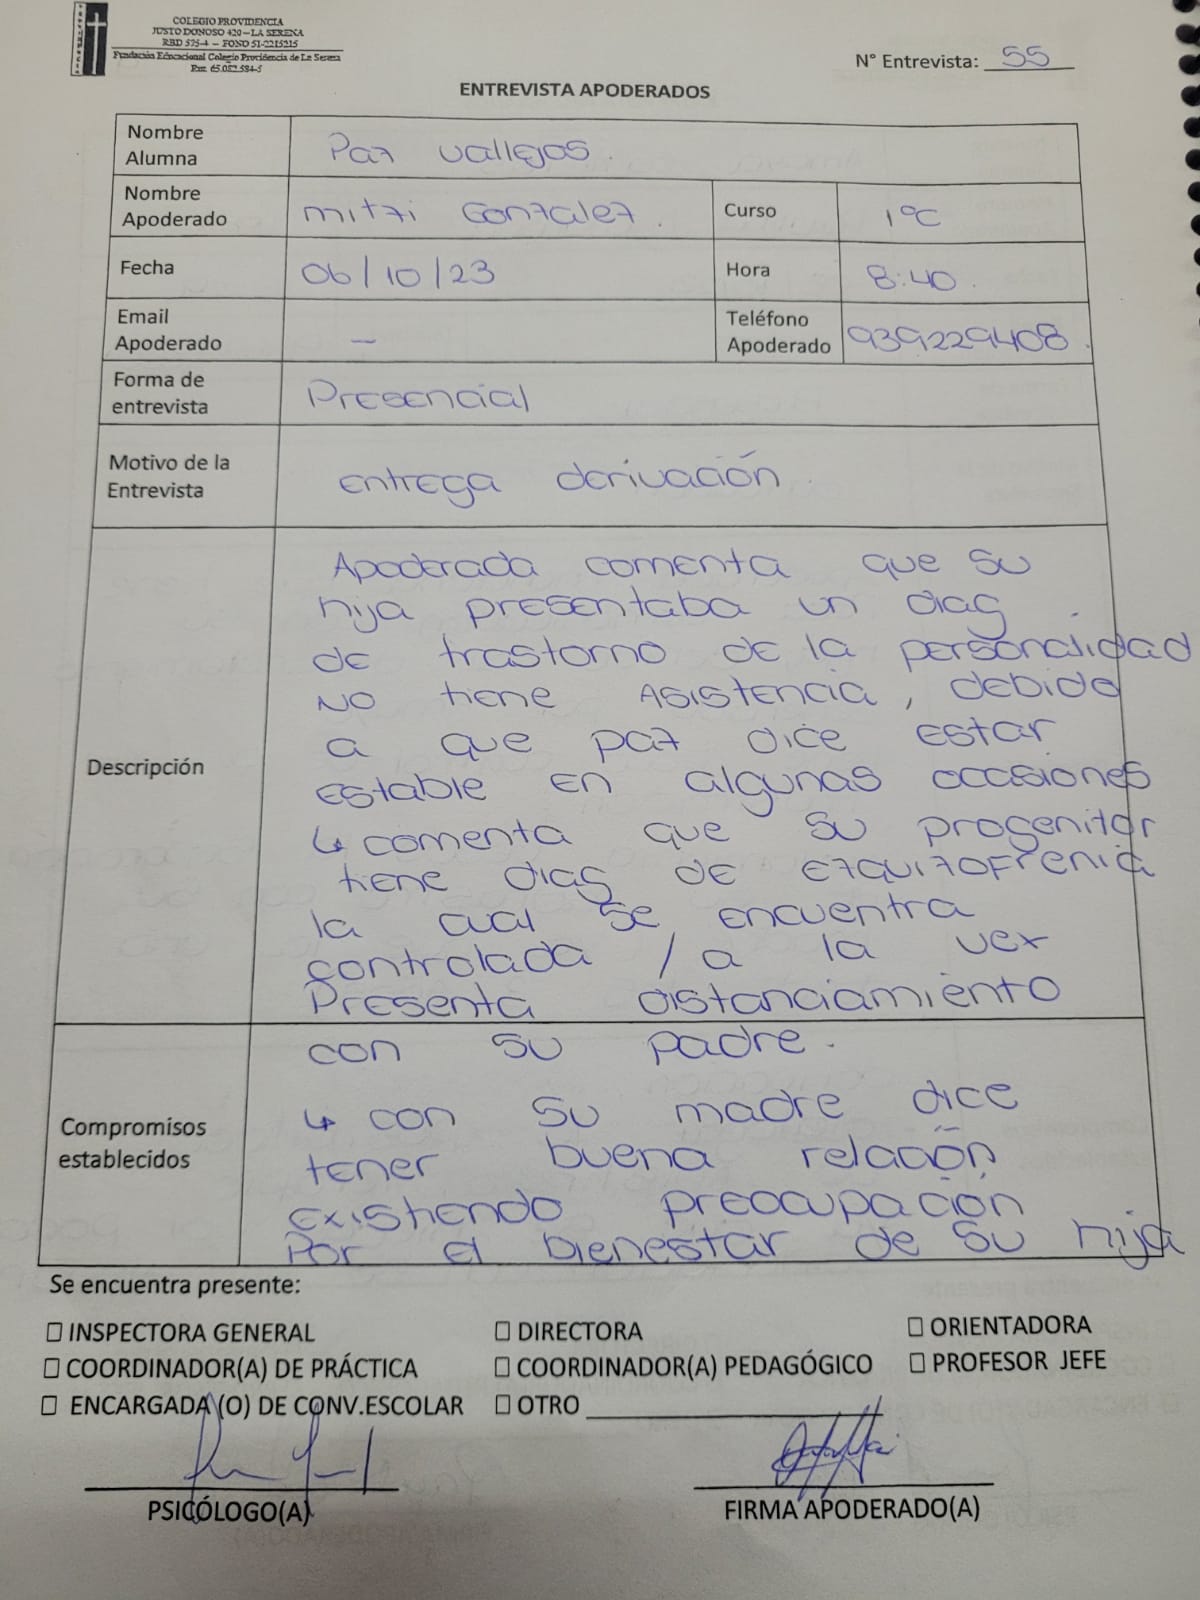 COLEGIO PROVIDENCIA
JUSTO DONOSO 420 – LA SERENA
RBD 575-4 – FONO 51-2215215
Fundación Educacional Colegio Providencia de La Serena
Rut: 65.052.584-5
N° Entrevista: 55
ENTREVISTA APODERADOS
Nombre Alumna Paz Vallejos.
Nombre Apoderado Mitzi Gonzalez. Curso 1°C
Fecha 06/10/23 Hora 8:40.
Email Apoderado – Teléfono Apoderado 939229408.
Forma de entrevista Presencial
Motivo de la Entrevista entrega derivación.
Descripción
Apoderada comenta que su
hija presentaba un diag.
de trastorno de la personalidad
No tiene Asistencia, debido
a que paz dice estar
estable en algunas occasiones
↳ comenta que su progenitor
tiene diag de ezquizofrenia
la cual se encuentra
controlada / a la vex
Presenta distanciamiento
Compromisos establecidos
con su padre.
↳ con su madre dice
tener buena relación
existiendo preocupación
Por el bienestar de su hija
Se encuentra presente:
☐ INSPECTORA GENERAL ☐ DIRECTORA ☐ ORIENTADORA
☐ COORDINADOR(A) DE PRÁCTICA ☐ COORDINADOR(A) PEDAGÓGICO ☐ PROFESOR JEFE
☐ ENCARGADA (O) DE CONV.ESCOLAR ☐ OTRO
PSICÓLOGO(A) FIRMA APODERADO(A)